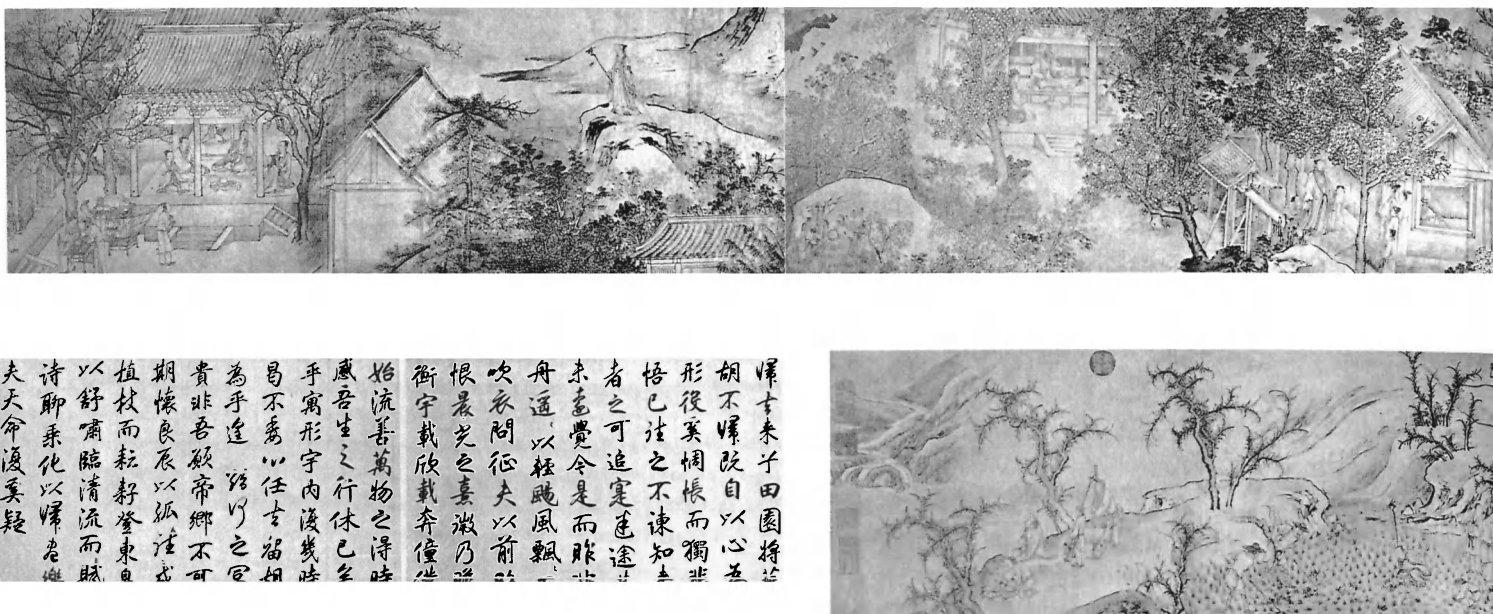 歸去来兮田園將蕪
胡不歸既自以心為
形役奚惆悵而獨悲
悟已往之不諫知来
者之可追寔迷途其
未遠覺今是而昨非
舟遥〻以輕颺風飄〻
吹衣問征夫以前路
恨晨光之熹微乃瞻
衡宇載欣載奔僮僕
始流善萬物之得時
感吾生之行休已矣
乎寓形宇内復幾時
曷不委心任去留胡
為乎遑之富
貴非吾願帝鄉不可
期懷良辰以孤往或
植杖而耘耔登東皋
以舒嘯臨清流而賦
詩聊乘化以歸盡樂
夫天命復奚疑